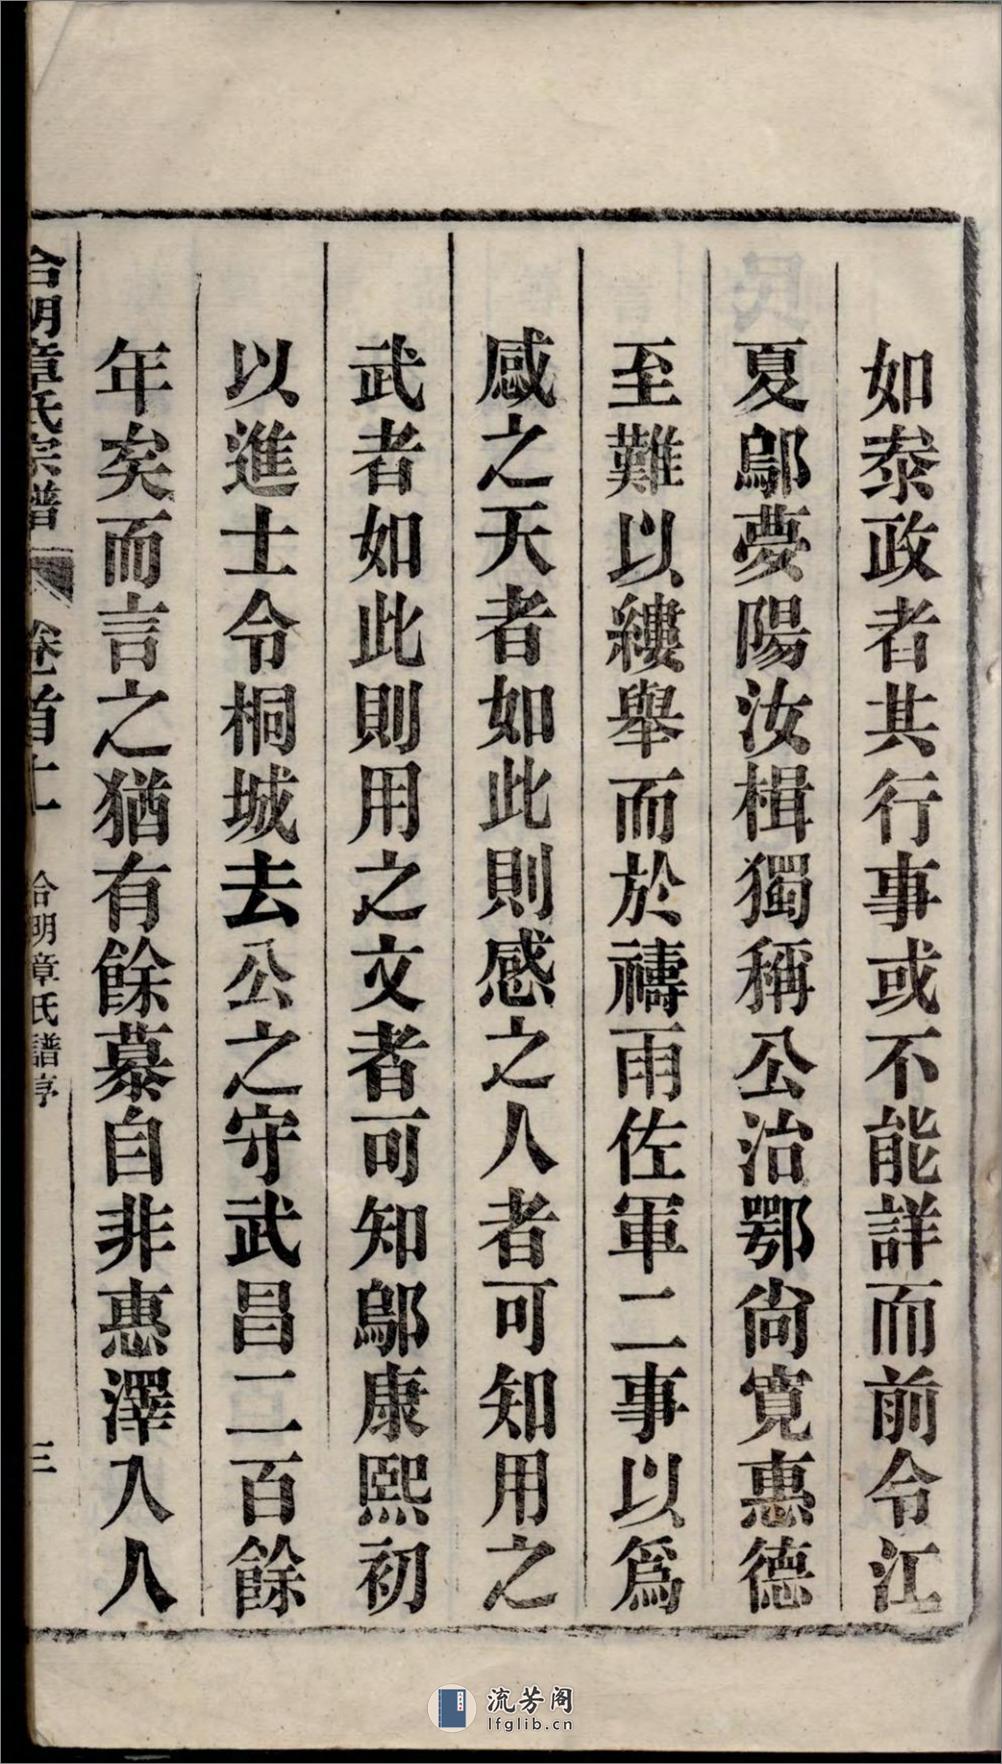 如泰政者其行事或不能詳而前令江
夏鄔夢陽汝楫獨稱公治鄂尙寛惠德
至難以縷舉而於禱雨佐軍二事以爲
感之天者如此則感之人者可知用之
武者如此則用之文者可知鄔康熙初
以進士令桐城去公之守武昌二百餘
年矣而言之猶有餘慕自非惠澤入人
合明章氏宗譜 卷首上 合明章氏譜序 三
流芳阁
lfglib.cn